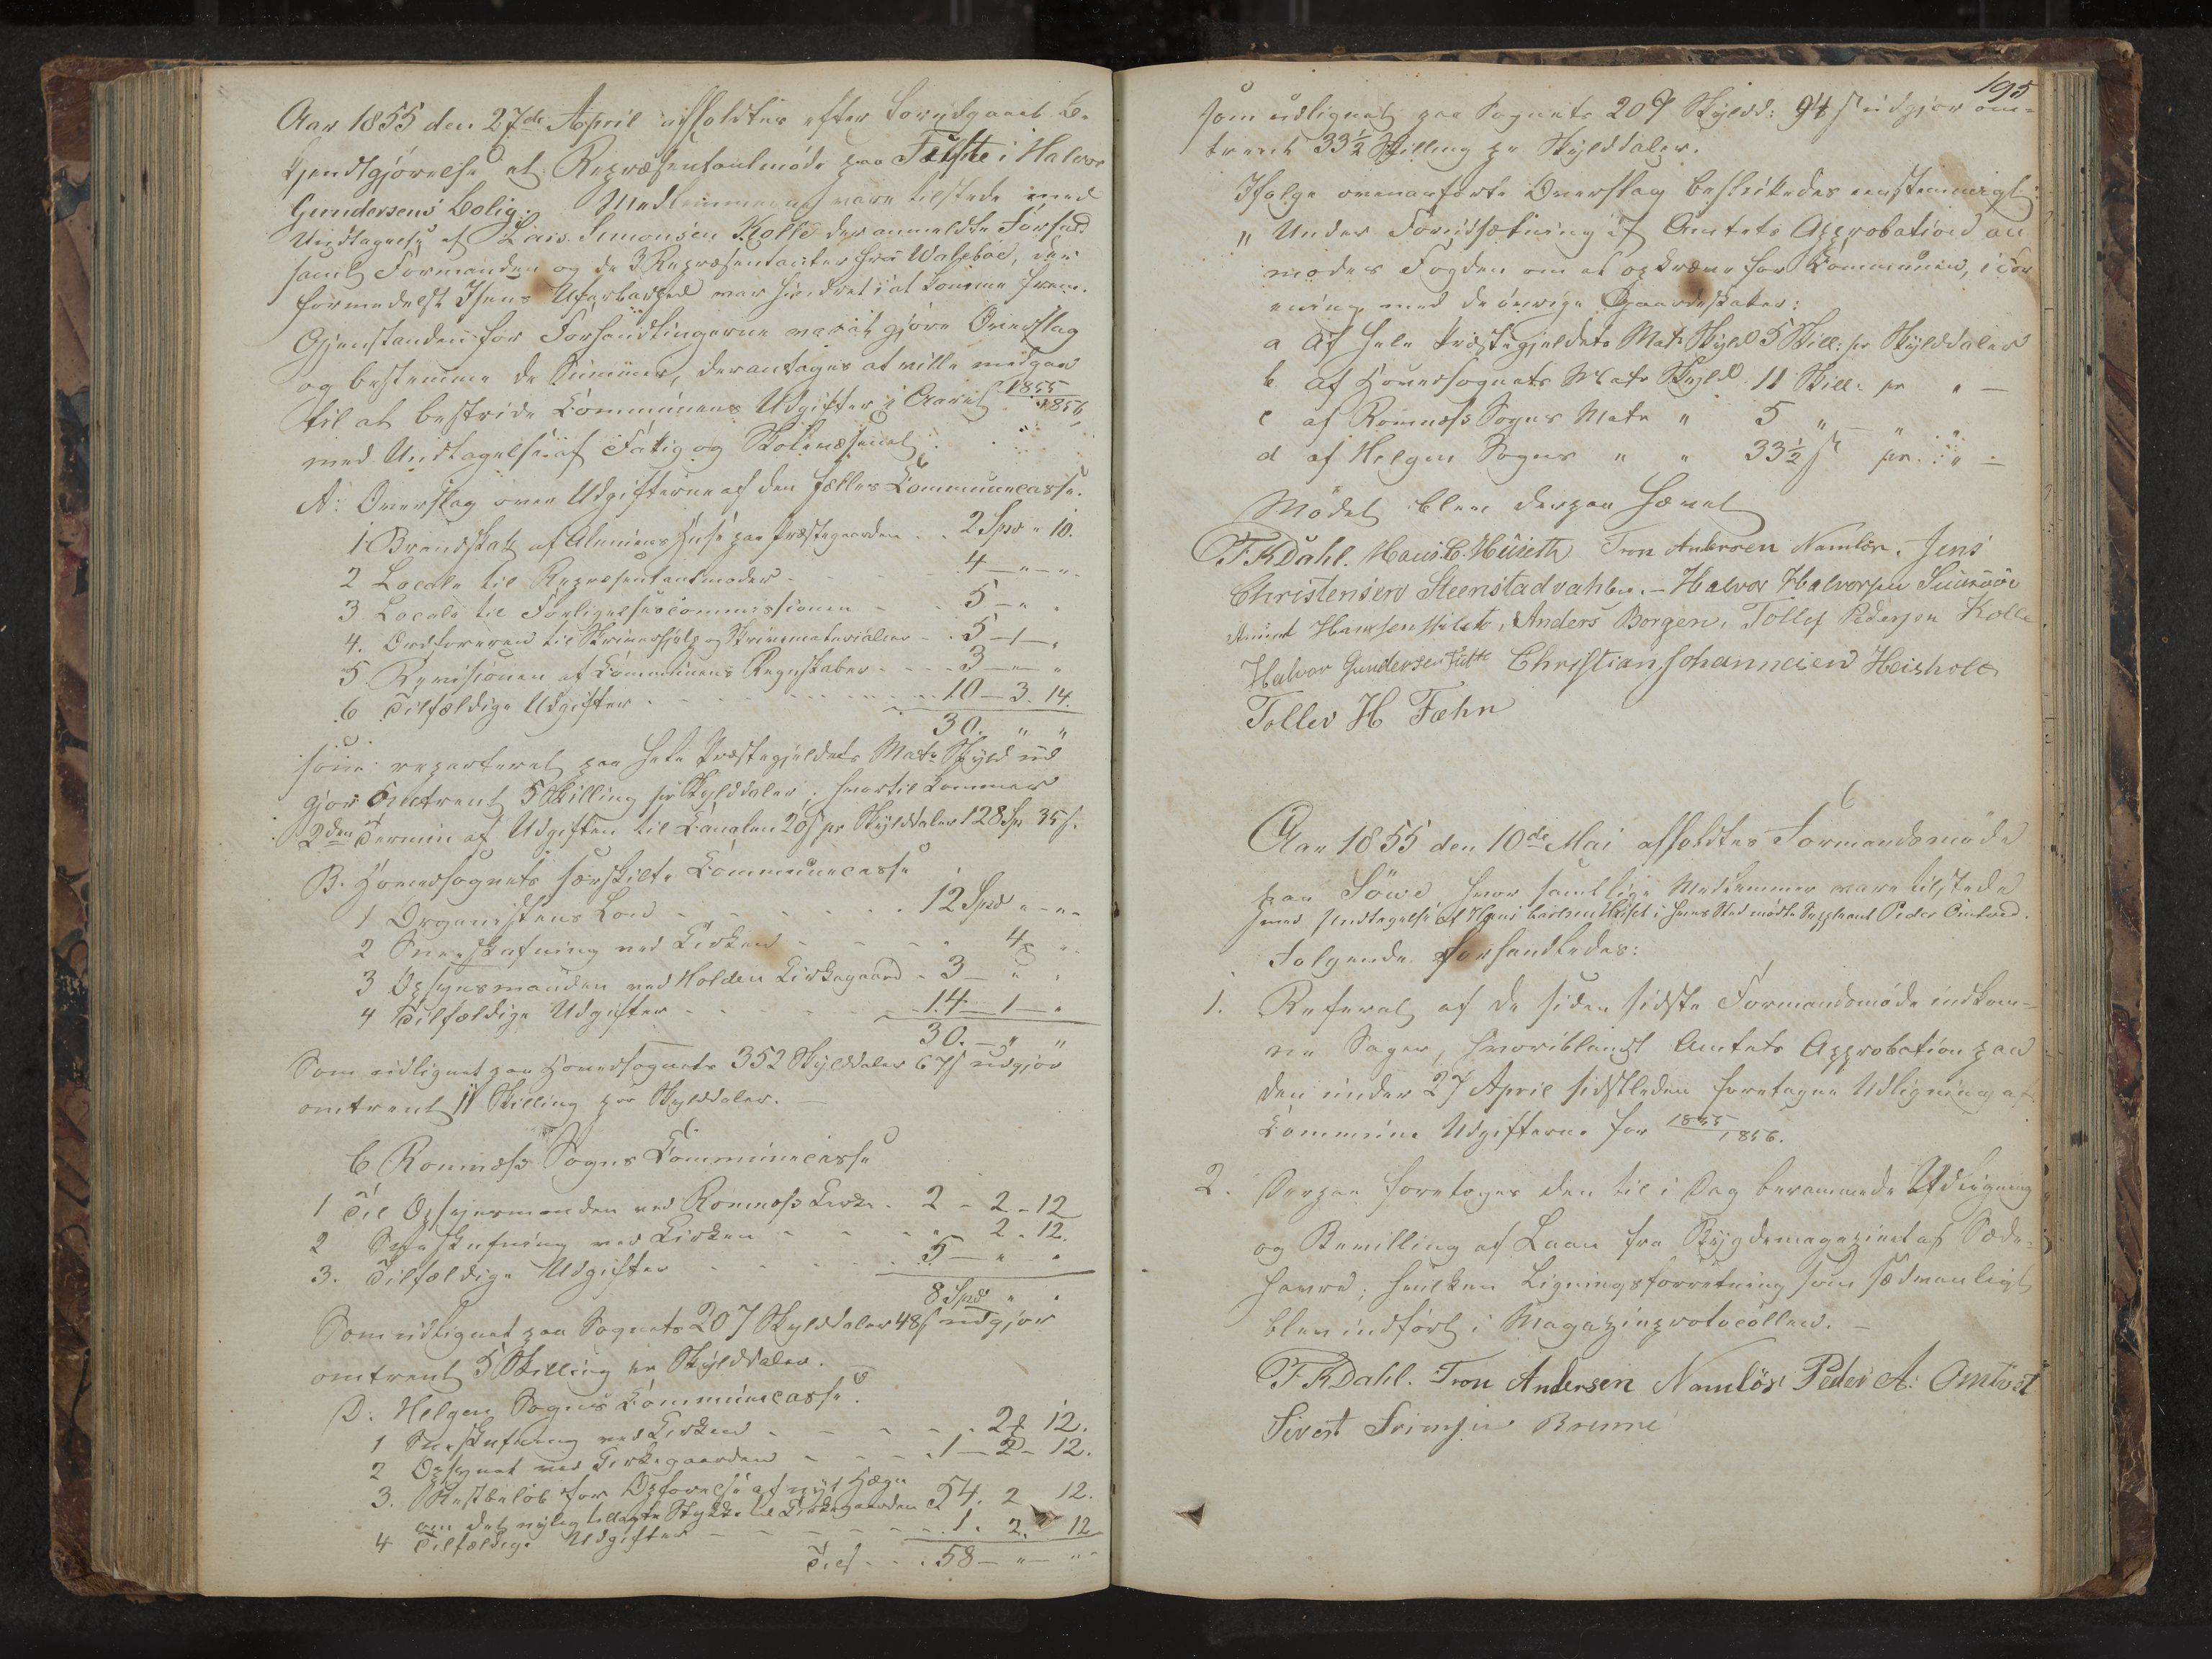 Aar 1855 den 27de April afholdtes efter forudgaaet Be-
kjendtgjørelse et Repræsentantmøde paa Tufte i Halvor
Gundersens Bolig. Medlemmerne vare tilstede med
Undtagelse af Lars Simonsen Kolle der anmeldte Forfald
samt Formanden og de 3 Repræsentanter fra Walebøe, der
formedelst Isens Ufarbarhed var hindret i at komme frem.
Gjenstanden for Forhandlingerne var at gjøre Overslag
og bestemme de Summer, der antages at ville medgaae
til at bestride Communens Udgifter i Aaret 1855/1856
med Undtagelse af Fattig og Skolevæsenet
A: Overslag over Udgifterne af den fælles Communecasse.
1 Brandskat af Almuens Huse paa Præstegaarden . . 2 Spd " 10.
2 Locale til Repræsentantmøder - - - 4 — " — "
3 Locale til Forligelsescommissionen - - 5 — " "
4. Ordføreren til Skriverhjelp og Skrivematerialier - 5 — 1 — "
5 Revisionen af Communens Regnskaber - - - 3 — " — "
6 Tilfældige Udgifter - - - - - 10 — 3. 14.
30. " "
som reparteret paa hele Præstegjeldets Matr. Skyld ud
gjør omtrent 5 Skilling pr Skylddaler, hvortil kommer
2den Termin af Udgiften til Canalen 20 s pr Skylddaler 128 Sp 35 s.
B. Hovedsognets særskilte Communecasse
1 Organistens Løn - - - - - 12 Spd " - " -
2 Sneeskufning ved Kirken - - - - 4 "
3 Opsynsmanden ved Holden Kirkegaard - 3 — " "
4 Tilfældige Udgifter - - - - - 14 — 1 — "
30. — " "
Som udlignet paa Hovedsognets 352 Skylddaler 67 s udgjør
omtrent 11 Skilling pr Skylddaler. —
C Romnæss Sogns Communecasse
1 Til Opsynsmanden ved Romnæss Kirke - 2 - 2 - 12
2 Sneskufning ved Kirken - - - " 2 - 12.
3. Tilfældige Udgifter - - - - 5 — " "
8 Spd " "
Som udlignet paa Sognets 207 Skylddaler 48 s udgjør
omtrent 5 Skilling pr Skylddaler.
D: Helgen Sogns Communecasse.
1 Sneskufning ved Kirken - - - - 2 12.
2 Opsynet ved Kirkegaarden - - - 1 — 2 - 12.
3. Restbeløb for Opførelse af nyt Hegn
om det nylig tillagte Stykke til Kirkegaarden 54. 2 12.
4 Tilfældige Udgifter - - - - - 1. 2. 12
Tils. - - 58 — " — " -
195
som udlignet paa Sognets 209 Skyldd: 94 s udgjør om-
trent 33½ Skilling pr Skylddaler.
Ifølge ovenanførte Overslag besluttedes eenstemmigt:
" Under Forudsætning af Amtets Approbation an
modes Fogden om at opkræve for Communen, i For
ening med de øvrige Gaardskatter:
a Af hele Præstegjeldets Matr. Skyld 5 Skill: pr Skylddaler
b. af Hovedsognets Matr Skyld 11 Skill: pr " —
c af Romnæss Sogns Matr " 5 " " "
d af Helgen Sogns " " 33½ s pr. " —
Mødet blev derpaa hævet
F. K Dahl. Hans C. Huseth Tron Andersen Namløs. Jens
Christensen Steenstadvahlen. — Halvor Halvorsen
Amund Hansen, Anders Borgen, Tollef Pedersen Kolle
Halvor Gundersen Tufte Christian Johannesen Heisholt
Tollev H Fæhn
Aar 1855 den 10de Mai afholdtes Formandsmøde
paa Söwe hvor samtlige Medlemmer vare tilstede
med Undtagelse af Hans Carlsen Huset i hvis Sted mødte Suppleant Peder Omtved.
Følgende forhandledes:
1. Referat af de siden sidste Formandsmøde indkom-
ne Sager, hvoriblandt Amtets Approbation paa
den under 27 April sidstleden foretagne Udligning af
Commune Udgifterne for 1855/1856.
2. Derpaa foretoges den til i Dag berammede Udligning
og Bevilling af Laan fra Bygdemagazinet af Sæde-
havre; hvilken Ligningsforretning som sædvanligt
blev indført i Magazinprotocollen. —
F K Dahl. Tron Andersen Namløs Peder A: Omtvet
Sivert Brenne